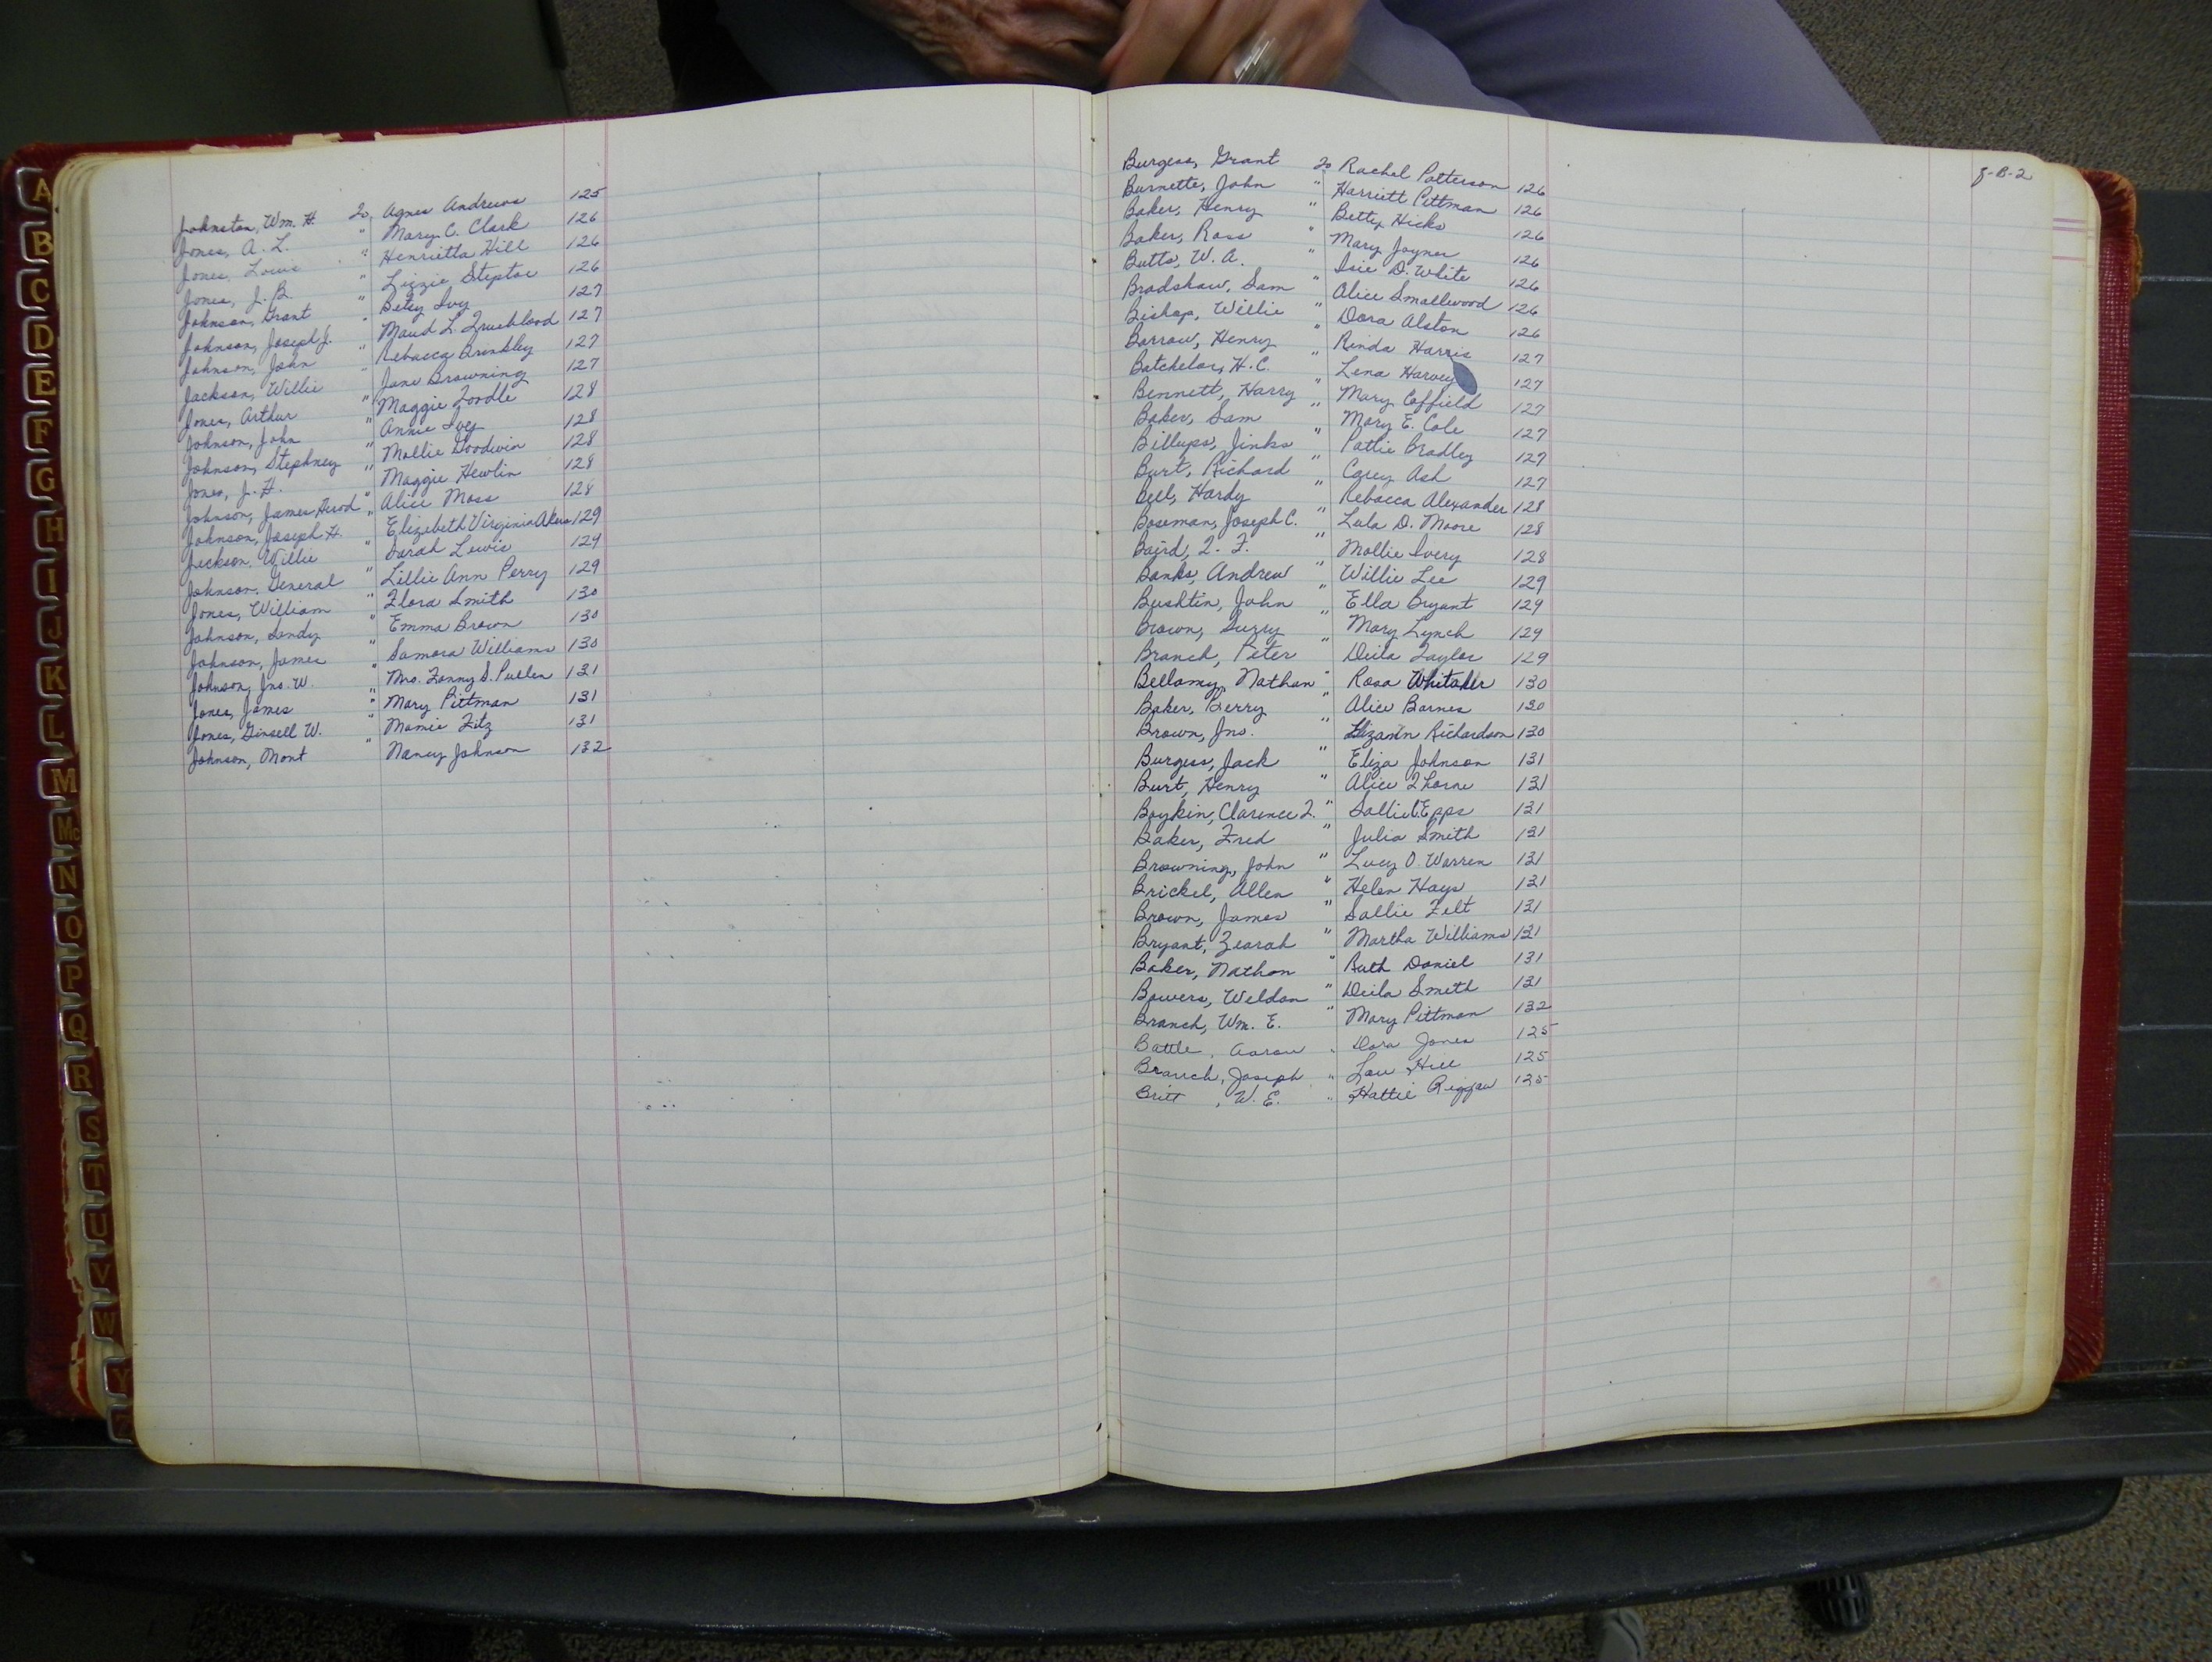 A
B
C
D
E
F
G
H
I
J
K
L
M
Mc
N
O
P
Q
R
S
T
U
V
W
Y
Johnston, Wm. H. To Agnes Andrews 125
Jones, A. L. " Mary C. Clark 126
Jones, Louis " Henrietta Hill 126
Jones, J. B. " Lizzie Steptoe 126
Johnson, Grant " Betsy Ivy 127
Johnson, Joseph J. " Maud L. Trueblood 127
Johnson, John " Rebecca Brinkley 127
Jackson, Willie " Jane Browning 127
Jones, Arthur " Maggie Toodle 128
Johnson, John " Annie Ivey 128
Johnson, Stephney " Mollie Goodwin 128
Jones, J. H. " Maggie Hewlin 128
Johnson, James Herod " Alice Moss 128
Johnson, Joseph H. Elizebeth Virginia Akers 129
Jackson, Willie " Sarah Lewis 129
Johnson, General " Lillie Ann Perry 129
Jones, William " Flora Smith 130
Johnson, Sandy " Emma Brown 130
Johnson, James " Samora Williams 130
Johnson, Jno. W. " Mrs. Fanny S. Pullen 131
Jones, James " Mary Pittman 131
Jones, W. " Mamie Fitz 131
Johnson, Mont " Nancy Johnson 132
g-B-2
Burgess, Grant To Rachel Patterson 126
Burnette, John " Harriett Pittman 126
Baker, Henry " Betty Hicks 126
Baker, Ross " Mary Joyner 126
Butts, W. A. " Isie D. White 126
Bradshaw, Sam " Alice Smallwood 126
Bishop, Willie " Dora Alston 126
Barrow, Henry " Rinda Harris 127
Batchelor, H. C. " Lena Harvey 127
Bennett, Harry " Mary Coffield 127
Baker, Sam " Mary E. Cole 127
Billups, Jinks " Pattie Bradley 127
Burt, Richard " Carey Ash 127
Bell, Hardy " Rebecca Alexander 128
Boseman, Joseph C. " Lula D. Moore 128
Baird, T. F. " Mollie Ivery 128
Banks, Andrew " Willie Lee 129
Bushtin, John " Ella Bryant 129
Brown, Surry " Mary Lynch 129
Branch, Peter " Deila Taylor 129
Bellamy, Nathan " Rosa Whitaker 130
Baker, Berry " Alice Barnes 130
Brown, Jno. " Richardson 130
Burgess, Jack " Eliza Johnson 131
Burt, Henry " Alice Thorne 131
Boykin, Clarence T. " Sallie E. Epps 131
Baker, Fred " Julia Smith 131
Browning, John " Lucy O. Warren 131
Brickel, Allen " Helen Hays 131
Brown, James " Sallie Felt 131
Bryant, Zearah " Martha Williams 131
Baker, Nathan " Ruth Daniel 131
Bowers, Weldon " Deila Smith 131
Branch, Wm. E. " Mary Pittman 132
Battle, Aaron " Dora Jones 125
Branch, Joseph " Lou Hill 125
Britt, W. E. " Hattie Riggan 125